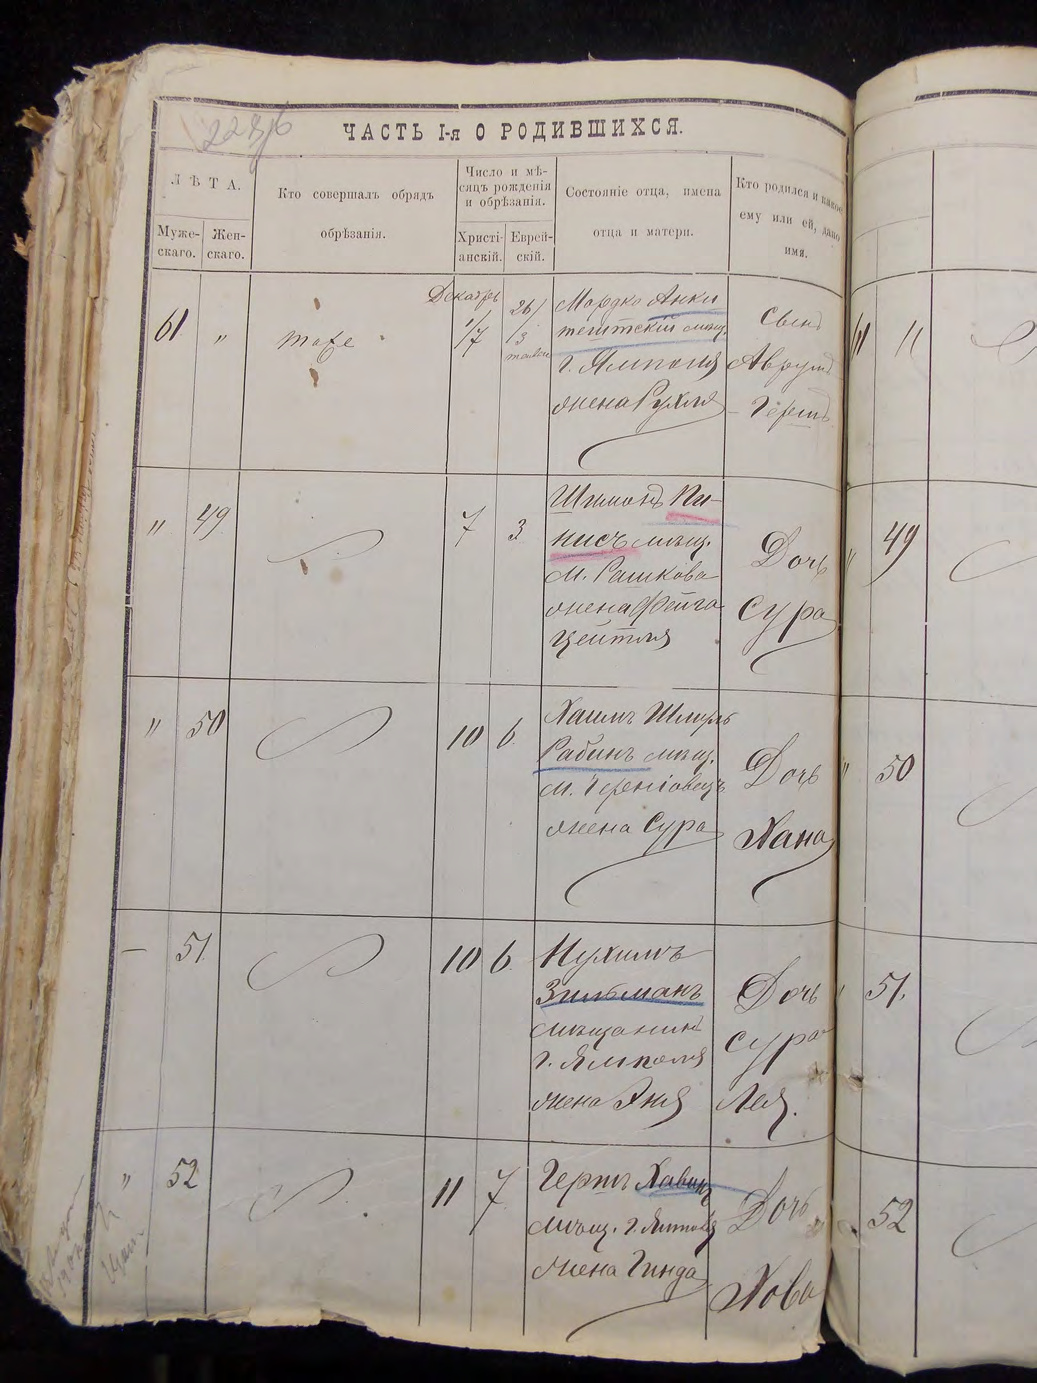 ЧАСТЬ I-я О РОДИВШИХСЯ.
ЛѢТА.
Мужескаго.
Женскаго.
Кто совершалъ обрядъ
обрѣзанія.
Число и мѣ-
сяцъ рожденія
и обрѣзанія.
Христі-
анскій.
Еврей-
скій.
Состояніе отца, имена
отца и матери.
Кто родился и какое
ему или ей, дано
имя.
61 " тоже Декабрь 26/3
Мордко Анки
мѣщ.
г. Ямполя
жена Рухля
Сынъ
Аврумъ
Гершъ
" 49 7 3
Шимонъ Пи-
нисъ мѣщ.
м. Рашкова
жена Фейга
Цейтля
Дочь
Сура
" 50 10 6
Хаимъ Шмуль
Рабинъ мѣщ.
м.
жена Сура
Дочь
Хана
— 51. 10 6.
Нухимъ
Зильманъ
мѣщанинъ
г. Ямполя
жена Эня
Дочь
Сура
Лея.
" 52 11 7
Гершъ Хавинъ
мѣщ. г. Ямполя
жена Гинда
Дочь
Хова
61 11
" 49
" 50
51.
52